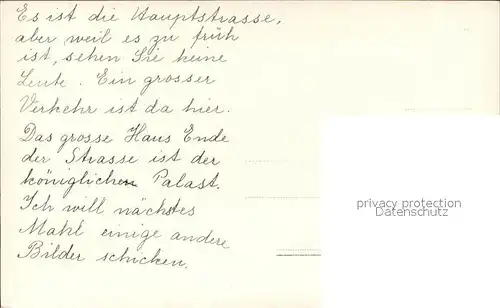 Es ist die Hauptstrasse,
aber weil es zu früh
ist, sehen Sie keine
Leute. Ein grosser
Verkehr ist da hier.
Das grosse Haus Ende
der Strasse ist der
königlichen Palast.
Ich will nächstes
Mahl einige andere
Bilder schicken.
privacy protection
Datenschutz